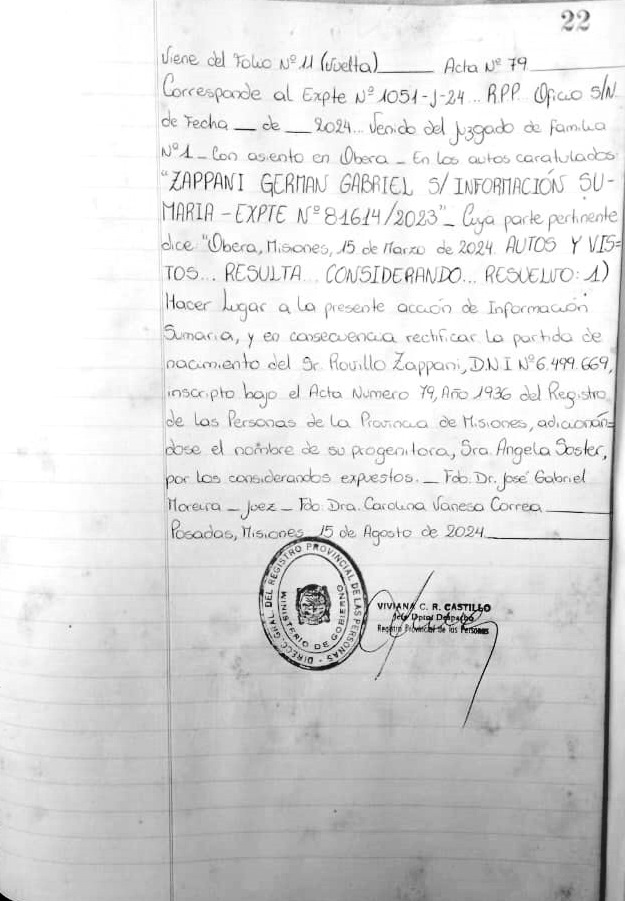 22
Viene del Folio Nº 11 (Vuelta)______ Acta Nº 79______
Corresponde al Expte Nº 1051-J-24... R.P.P. Oficio S/N
de Fecha __ de __ 2024... Venido del Juzgado de Familia
Nº1_ Con asiento en Obera_ En los autos caratulados:
"ZAPPANI GERMAN GABRIEL S/ INFORMACIÓN SU-
MARIA - EXPTE Nº 81614/2023"_ Cuya parte pertinente
dice "Obera, Misiones, 15 de Marzo de 2024. AUTOS Y VIS=
TOS... RESULTA... CONSIDERANDO... RESUELVO: 1)
Hacer Lugar a la presente acción de Información
Sumaria, y en consecuencia rectificar la partida de
nacimiento del Sr. Rovillo Zappani, D.N.I Nº 6.499.669,
inscripto bajo el Acta Numero 79, Año 1936 del Registro
de las Personas de la Provincia de Misiones, adicionán=
dose el nombre de su progenitora, Sra. Angela Soster,
por los considerandos expuestos._ Fdo. Dr. José Gabriel
Moreira _ Juez _ Fdo. Dra. Carolina Vanesa Correa______
Posadas, Misiones, 15 de Agosto de 2024______
DIRECC. GRAL. DEL REGISTRO PROVINCIAL DE LAS PERSONAS
MINISTERIO DE GOBIERNO
VIVIANA C. R. CASTILLO
Jefe Dptal Despacho
Registro Provincial de las Personas